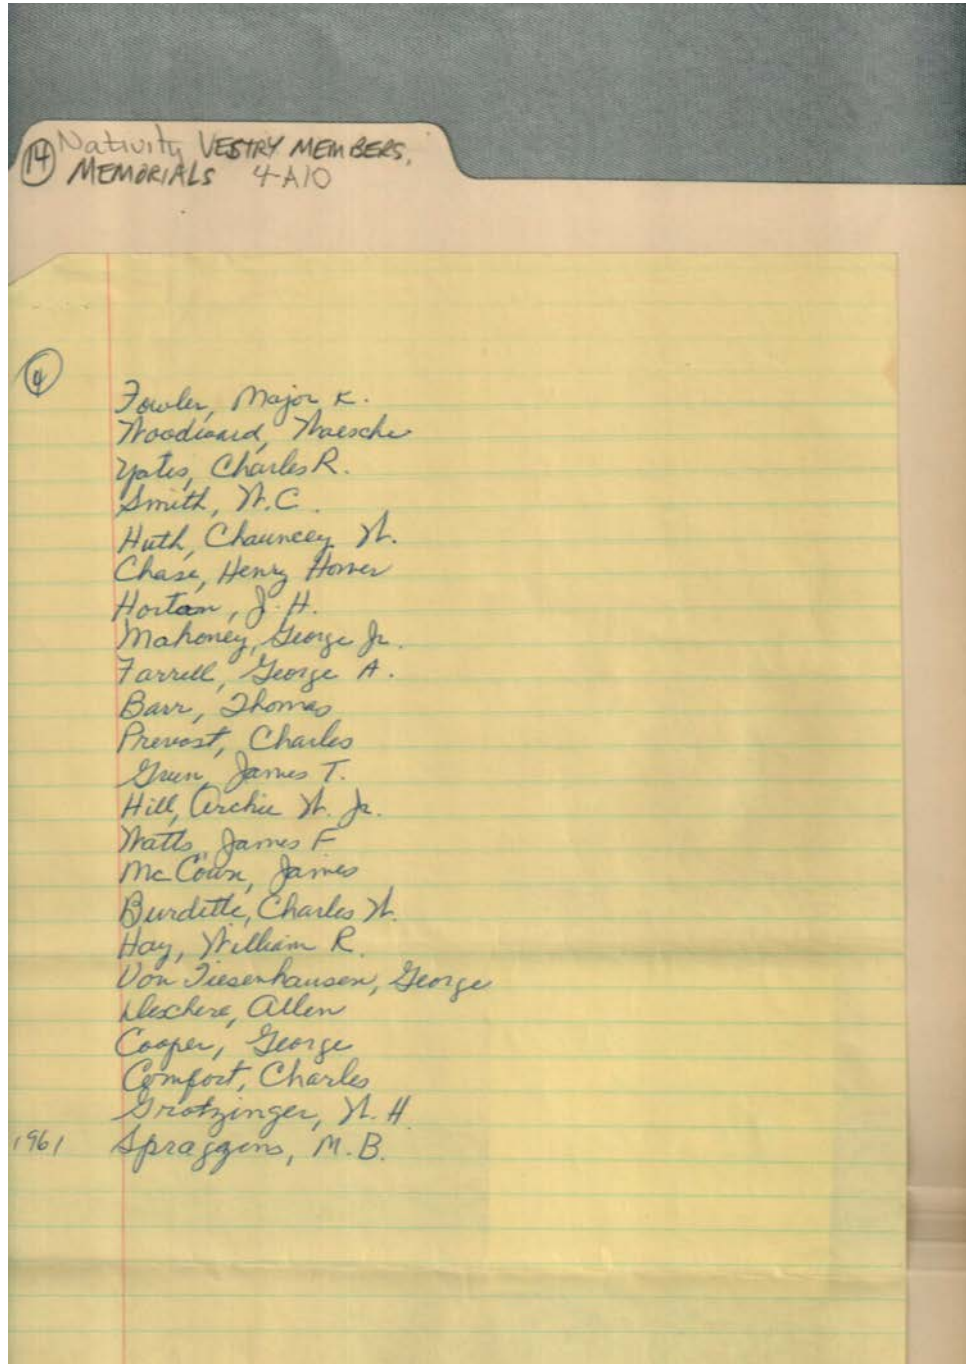 14 Nativity VESTRY MEMBERS,
MEMORIALS 4-A10
4
Fowler, Major K.
Woodward, Waesche
Yates, Charles R.
Smith, W.C.
Huth, Chauncey W.
Chase, Henry Homer
Horton, J. H.
Mahoney, George Jr.
Farrell, George A.
Barr, Thomas
Prevost, Charles
Green, James T.
Hill, Archie W. Jr.
Watts, James F
McCown, James
Burdette, Charles W.
Hay, William R.
Von Tiesenhausen, George
Allen
Cooper, George
Comfort, Charles
Grotzinger, W. H.
1961 Spraggins, M.B.